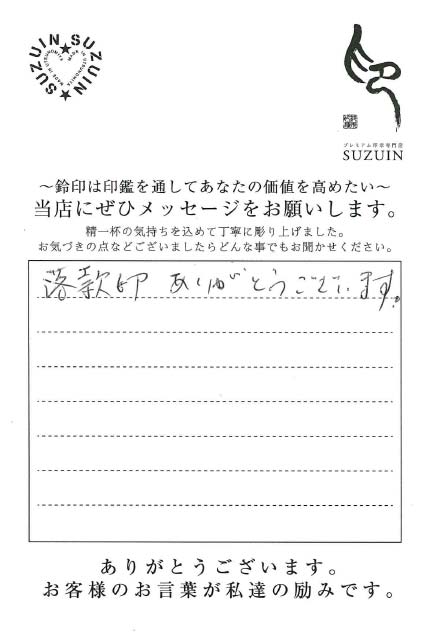 SUZUIN★SUZUIN★
プレミアム印章専門店
SUZUIN
～鈴印は印鑑を通してあなたの価値を高めたい～
当店にぜひメッセージをお願いします。
精一杯の気持ちを込めて丁寧に彫り上げました。
お気づきの点などございましたらどんな事でもお聞かせください。
落款印 ありがとうございます。
ありがとうございます。
お客様のお言葉が私達の励みです。